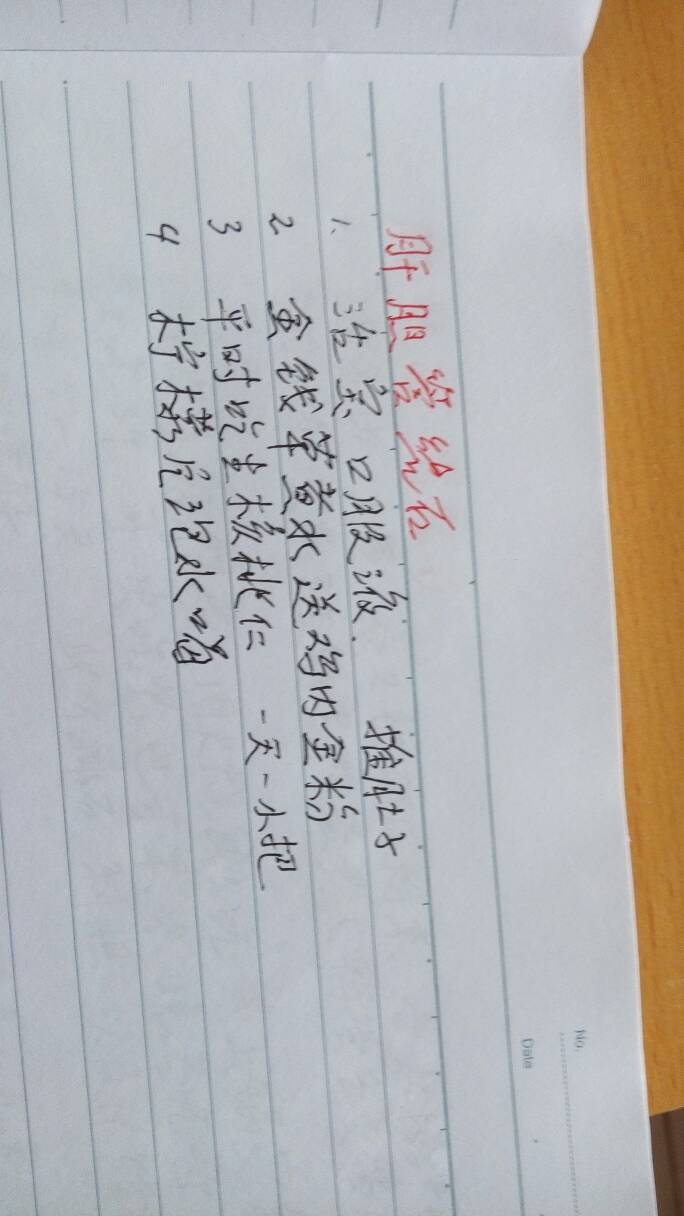 肝胆管结石
1、洁宗口服液. 推肚子
2 金钱草煮水送鸡内金粉
3 平时吃生核桃仁 一天一小把
4 柠檬片泡水喝
No.
Date